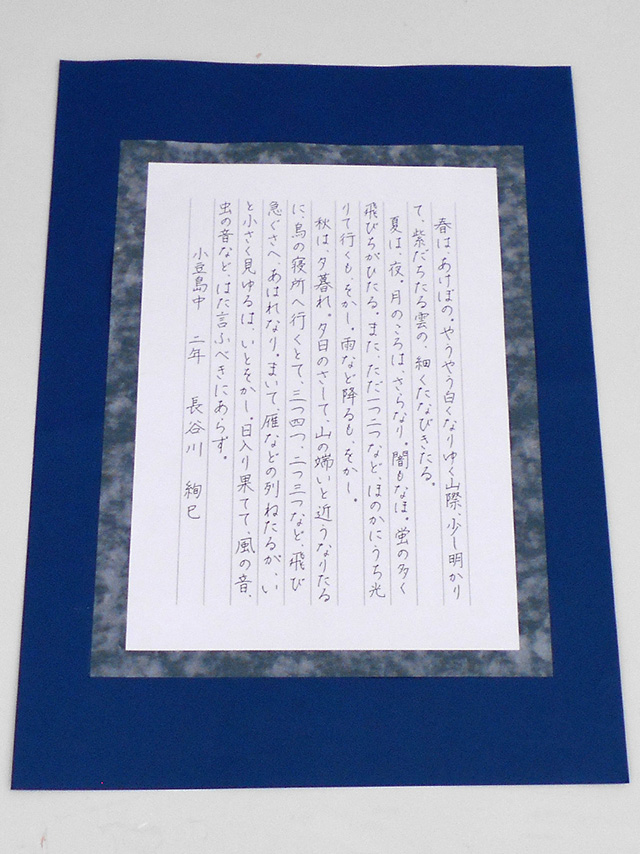 春は、あけぼの。やうやう白くなりゆく山際、少し明かり
て、紫だちたる雲の、細くたなびきたる。
夏は、夜。月のころは、さらなり。闇もなほ。蛍の多く
飛びちがひたる。また、ただ一つ二つなど、ほのかにうち光
りて行くも、をかし。雨など降るも、をかし。
秋は、夕暮れ。夕日のさして、山の端いと近うなりたる
に、烏の寝所へ行くとて、三つ四つ、二つ三つなど、飛び
急ぐさへ、あはれなり。まいて、雁などの列ねたるが、い
と小さく見ゆるは、いとをかし。日入り果てて、風の音、
虫の音など、はた言ふべきにあらず。
小豆島中 二年 長谷川 絢巳